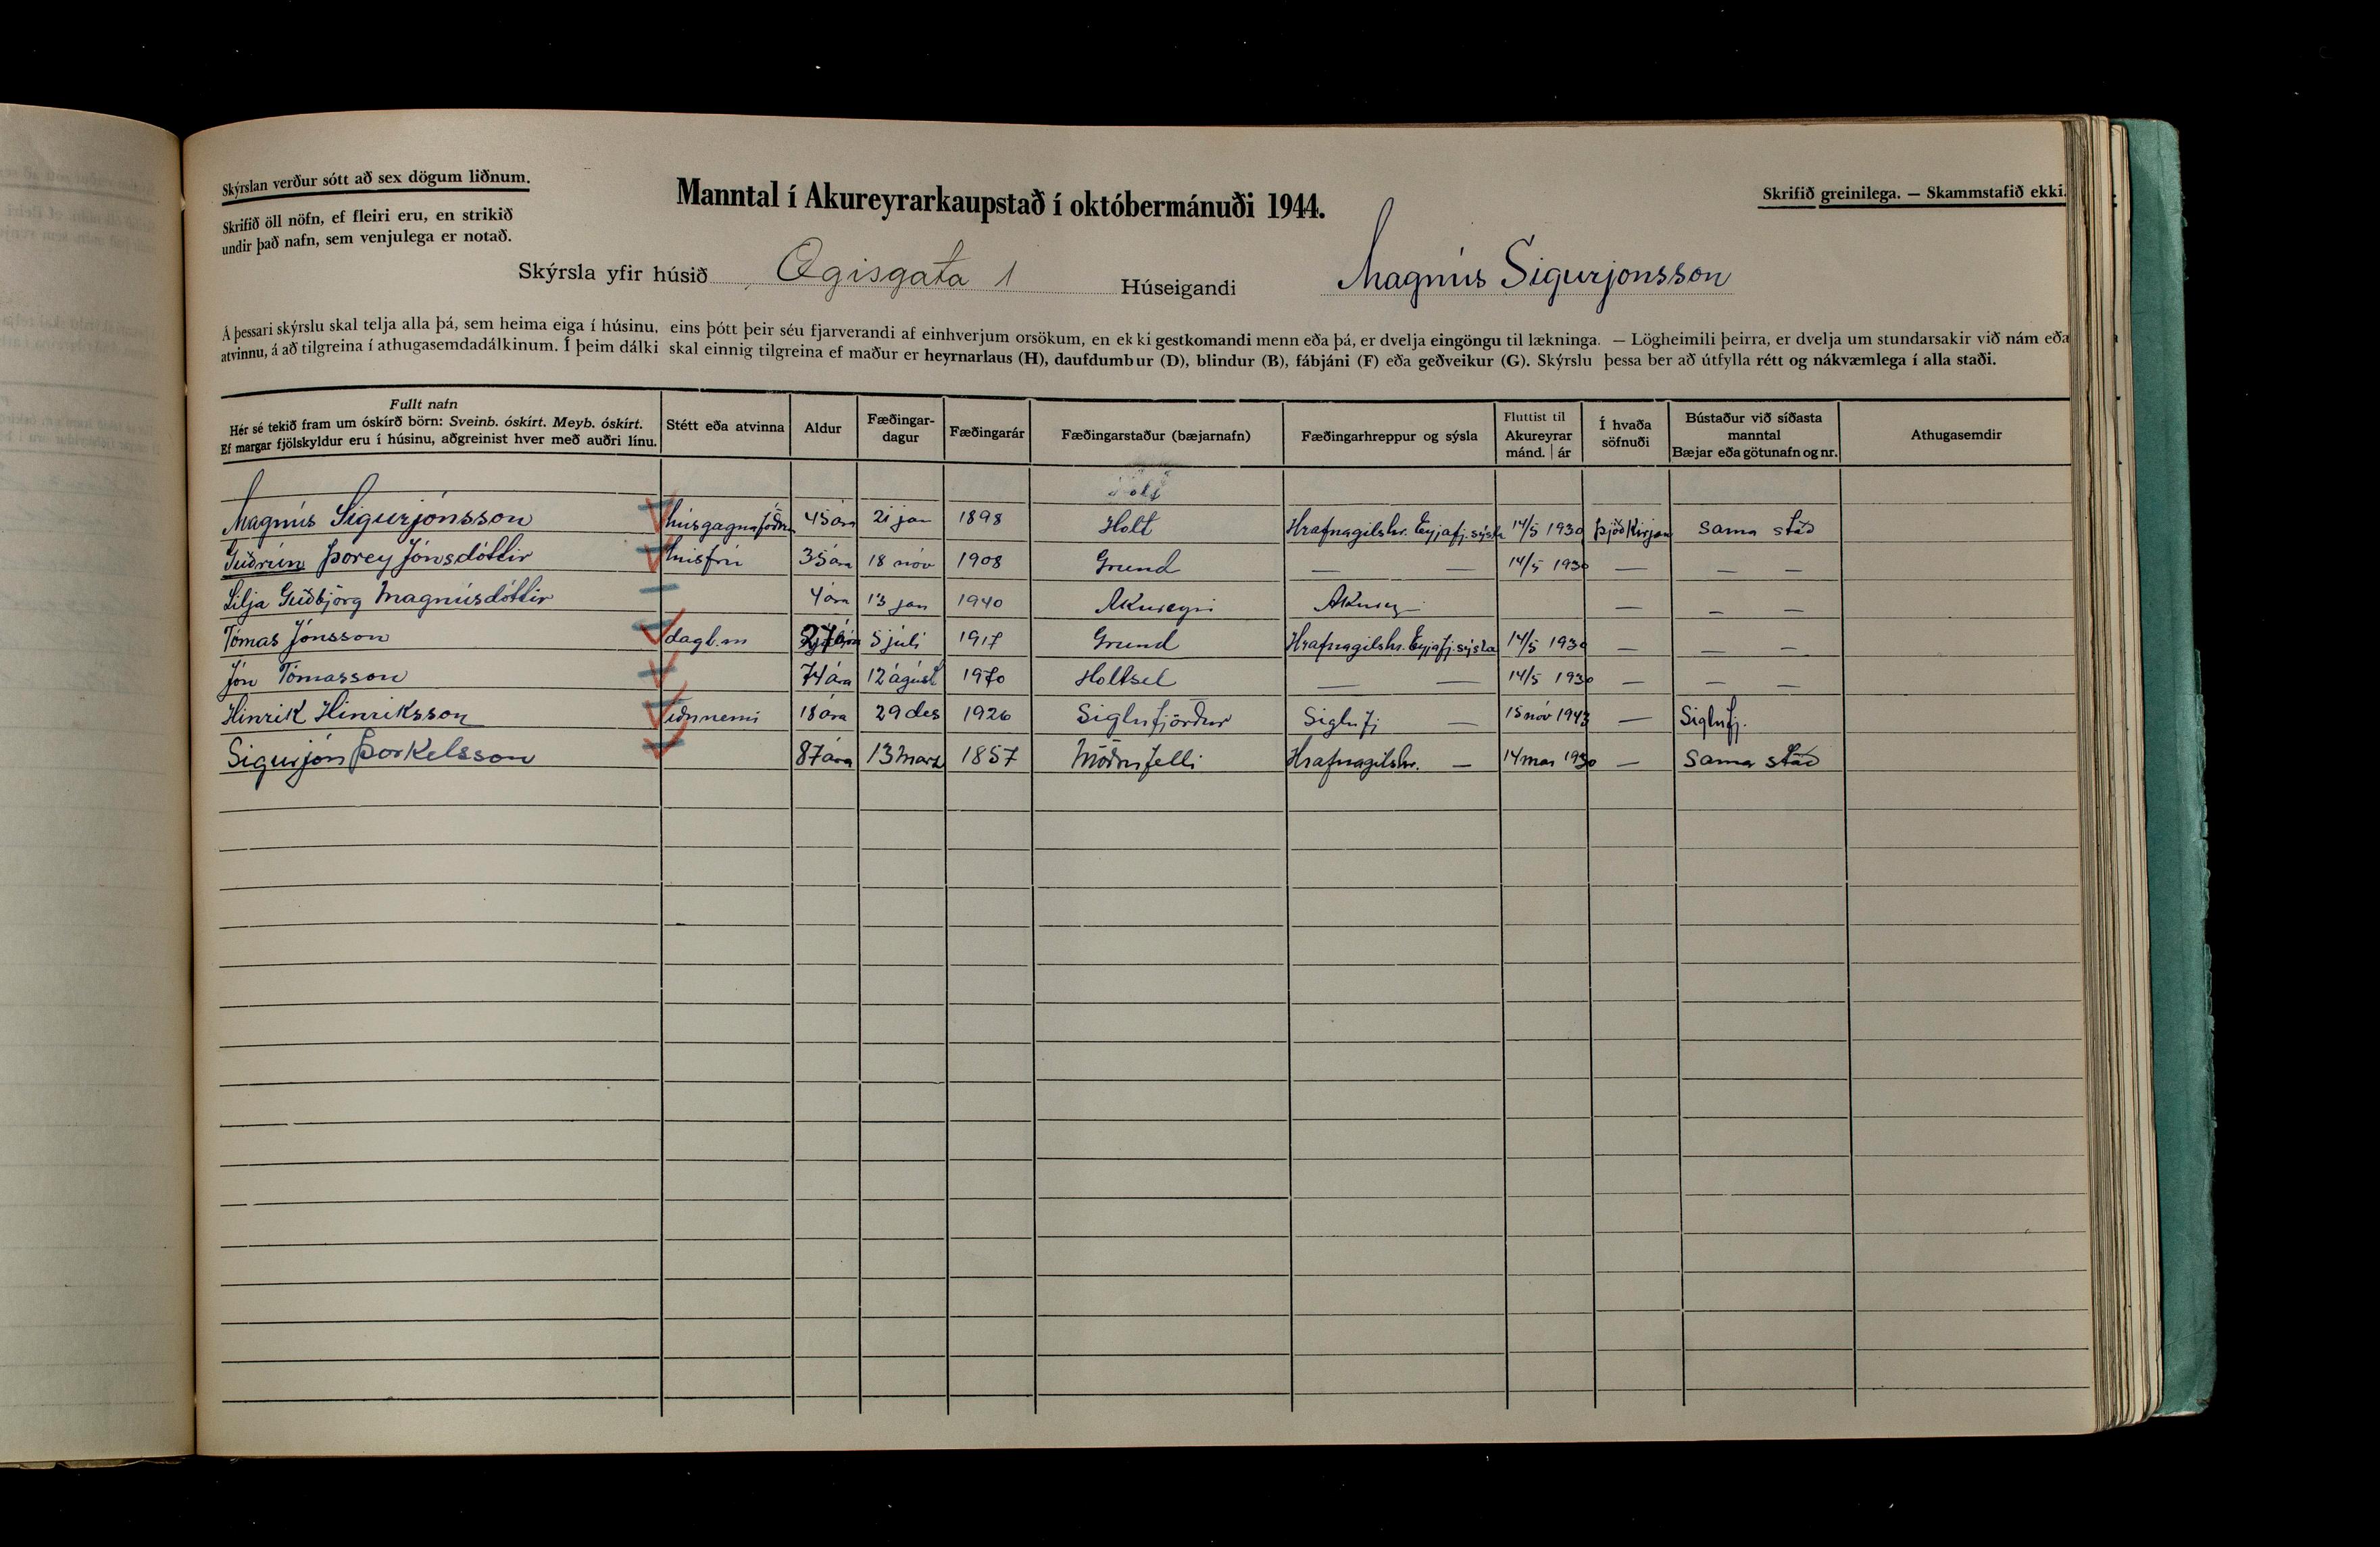 Skýrslan verður sótt að sex dögum liðnum.
Skrifið öll nöfn, ef fleiri eru, en strikið
undir það nafn, sem venjulega er notað.
Manntal í Akureyrarkaupstað í októbermánuði 1944.
Skrifið greinilega. — Skammstafið ekki.
Skýrsla yfir húsið Ægisgata 1 Húseigandi Magnús Sigurjonsson
Á þessari skýrslu skal telja alla þá, sem heima eiga í húsinu, eins þótt þeir séu fjarverandi af einhverjum orsökum, en ekki gestkomandi menn eða þá, er dvelja eingöngu til lækninga. — Lögheimili þeirra, er dvelja um stundarsakir við nám eða
atvinnu, á að tilgreina í athugasemdadálkinum. Í þeim dálki skal einnig tilgreina ef maður er heyrnarlaus (H), daufdumbur (D), blindur (B), fábjáni (F) eða geðveikur (G). Skýrslu þessa ber að útfylla rétt og nákvæmlega í alla staði.
Fullt nafn
Hér sé tekið fram um óskírð börn: Sveinb. óskírt. Meyb. óskírt.
Ef margar fjölskyldur eru í húsinu, aðgreinist hver með auðri línu.
Stétt eða atvinna
Aldur
Fæðingar-
dagur
Fæðingarár
Fæðingarstaður (bæjarnafn)
Fæðingarhreppur og sýsla
Fluttist til
Akureyrar
mánd. | ár
Í hvaða
söfnuði
Bústaður við síðasta
manntal
Bæjar eða götunafn og nr.
Athugasemdir
Magnús Sigurjónsson 45 ára 21 jan 1898 Holt Hrafnagilshr. Eyjafj. sýsla 14/5 1930 Þjóðkirjan sama stað
Guðrún Þorey Jónsdóttir húsfrú 35 ára 18 nóv 1908 Grund — — 14/5 1930 — — —
Lilja Guðbjörg Magnúsdóttir 4 ára 13 jan 1940 Akureyri Akurey — — — —
Tómas Jónsson dagl.m 27 ára 5 júli 1917 Grund Hrafnagilshr. Eyjafj. sýsla 14/5 1930 — — —
Jón Tómasson 74 ára 12 ágúst 1970 Holtsel — — 14/5 1930 — — —
Hinrik Hinriksson iðnnemi 18 ára 29 des 1926 Siglufjörður Siglufj — 15 nóv 1943 — Siglufj.
Sigurjón Þorkelsson 87 ára 13 marz 1857 Möðrufelli Hrafnagilshr. — 14 mai 1930 — Sama stað